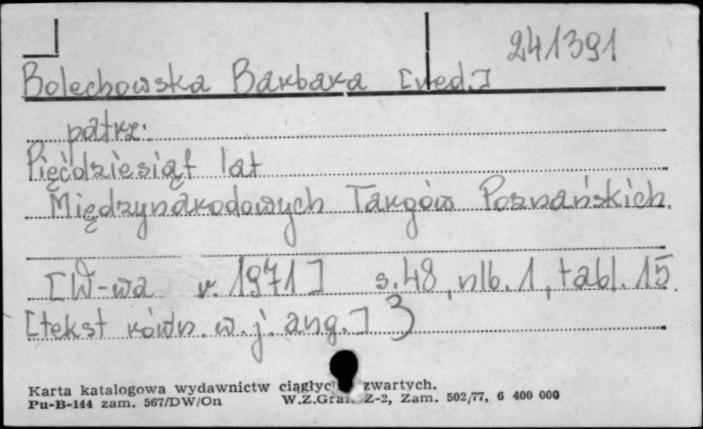 241391
Bolechowska Barbara [red.]
patrz:
Pięćdziesiąt lat
Międzynarodowych Targów Poznańskich.
[W-wa r. 1971] s. 48, nlb. 1, tabl. 15.
[tekst równ. w j. ang.] 3
Karta katalogowa wydawnictw zwartych.
Pu-B-144 zam. 567/DW/On W.Z.Graf. Z-2, Zam. 502/77, 6 400 000